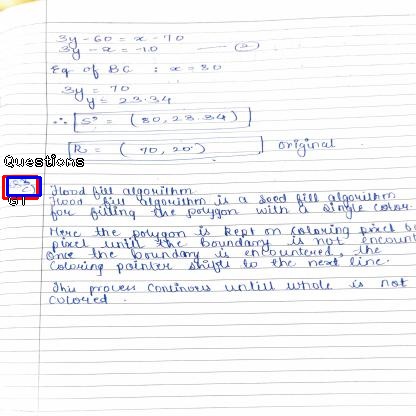 3y - 60 = x - 70
3y - x = -10 — (2)
Eq of BC : x = 80
3y = 70
y = 23.34
∴ [S' = (80, 23.34)]
[R = (70, 20)] original
Questions
Flood fill algorithm
Flood fill algorithm is a seed fill algorithm
for filling the polygon with a single color.
Here the polygon is kept on coloring pixel b
pixel until the boundary is not encount
Once the boundary is encountered, the
coloring pointer shifts to the next line.
This process continous untill whole is not
colored.